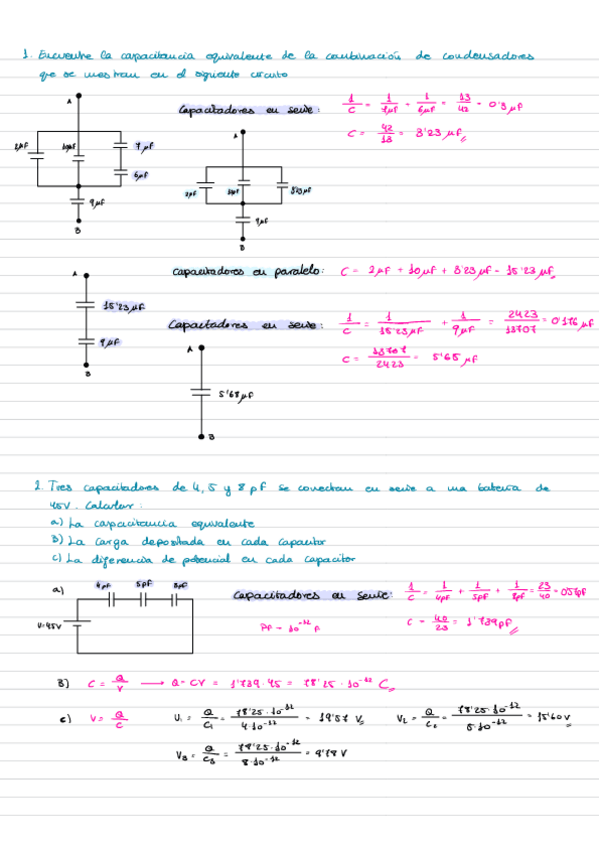 1. Encuentre la capacitancia equivalente de la combinación de condensadores
que se muestran en el siguiente circuito
A
Capacitadores en serie:
1/C = 1/7μF + 1/6μF = 13/42 = 0'3 μF
C = 42/13 = 3'23 μF
2μF 10μF 7 μF
6μF
9μF
B
A
2μF 10μF 3'23μF
9μF
B
Capacitadores en paralelo: C = 2μF + 10μF + 3'23μF = 15'23 μF
A
15'23μF
9μF
B
Capacitadores en serie: 1/C = 1/15'23μF + 1/9μF = 2423/13707 = 0'176 μF
C = 13707/2423 = 5'65 μF
A
5'65μF
B
2. Tres capacitadores de 4, 5 y 8 pF se conectan en serie a una batería de
45V. Calcular:
a) La capacitancia equivalente
b) La carga depositada en cada capacitor
c) La diferencia de potencial en cada capacitor
a) 4pF 5pF 8pF
V=45V
Capacitadores en serie: 1/C = 1/4pF + 1/5pF + 1/8pF = 23/40 =
PF = 10⁻¹² F
C = 40/23 = 1'739pF
B) C = Q/V → Q = CV = 1'739·45 = 78'25·10⁻¹² C
c) V = Q/C V₁ = Q/C₁ = 78'25·10⁻¹²/4·10⁻¹² = 19'57 V V₂ = Q/C₂ = 78'25·10⁻¹²/5·10⁻¹² = 15'60V
V₃ = Q/C₃ = 78'25·10⁻¹²/8·10⁻¹² = 9'78 V